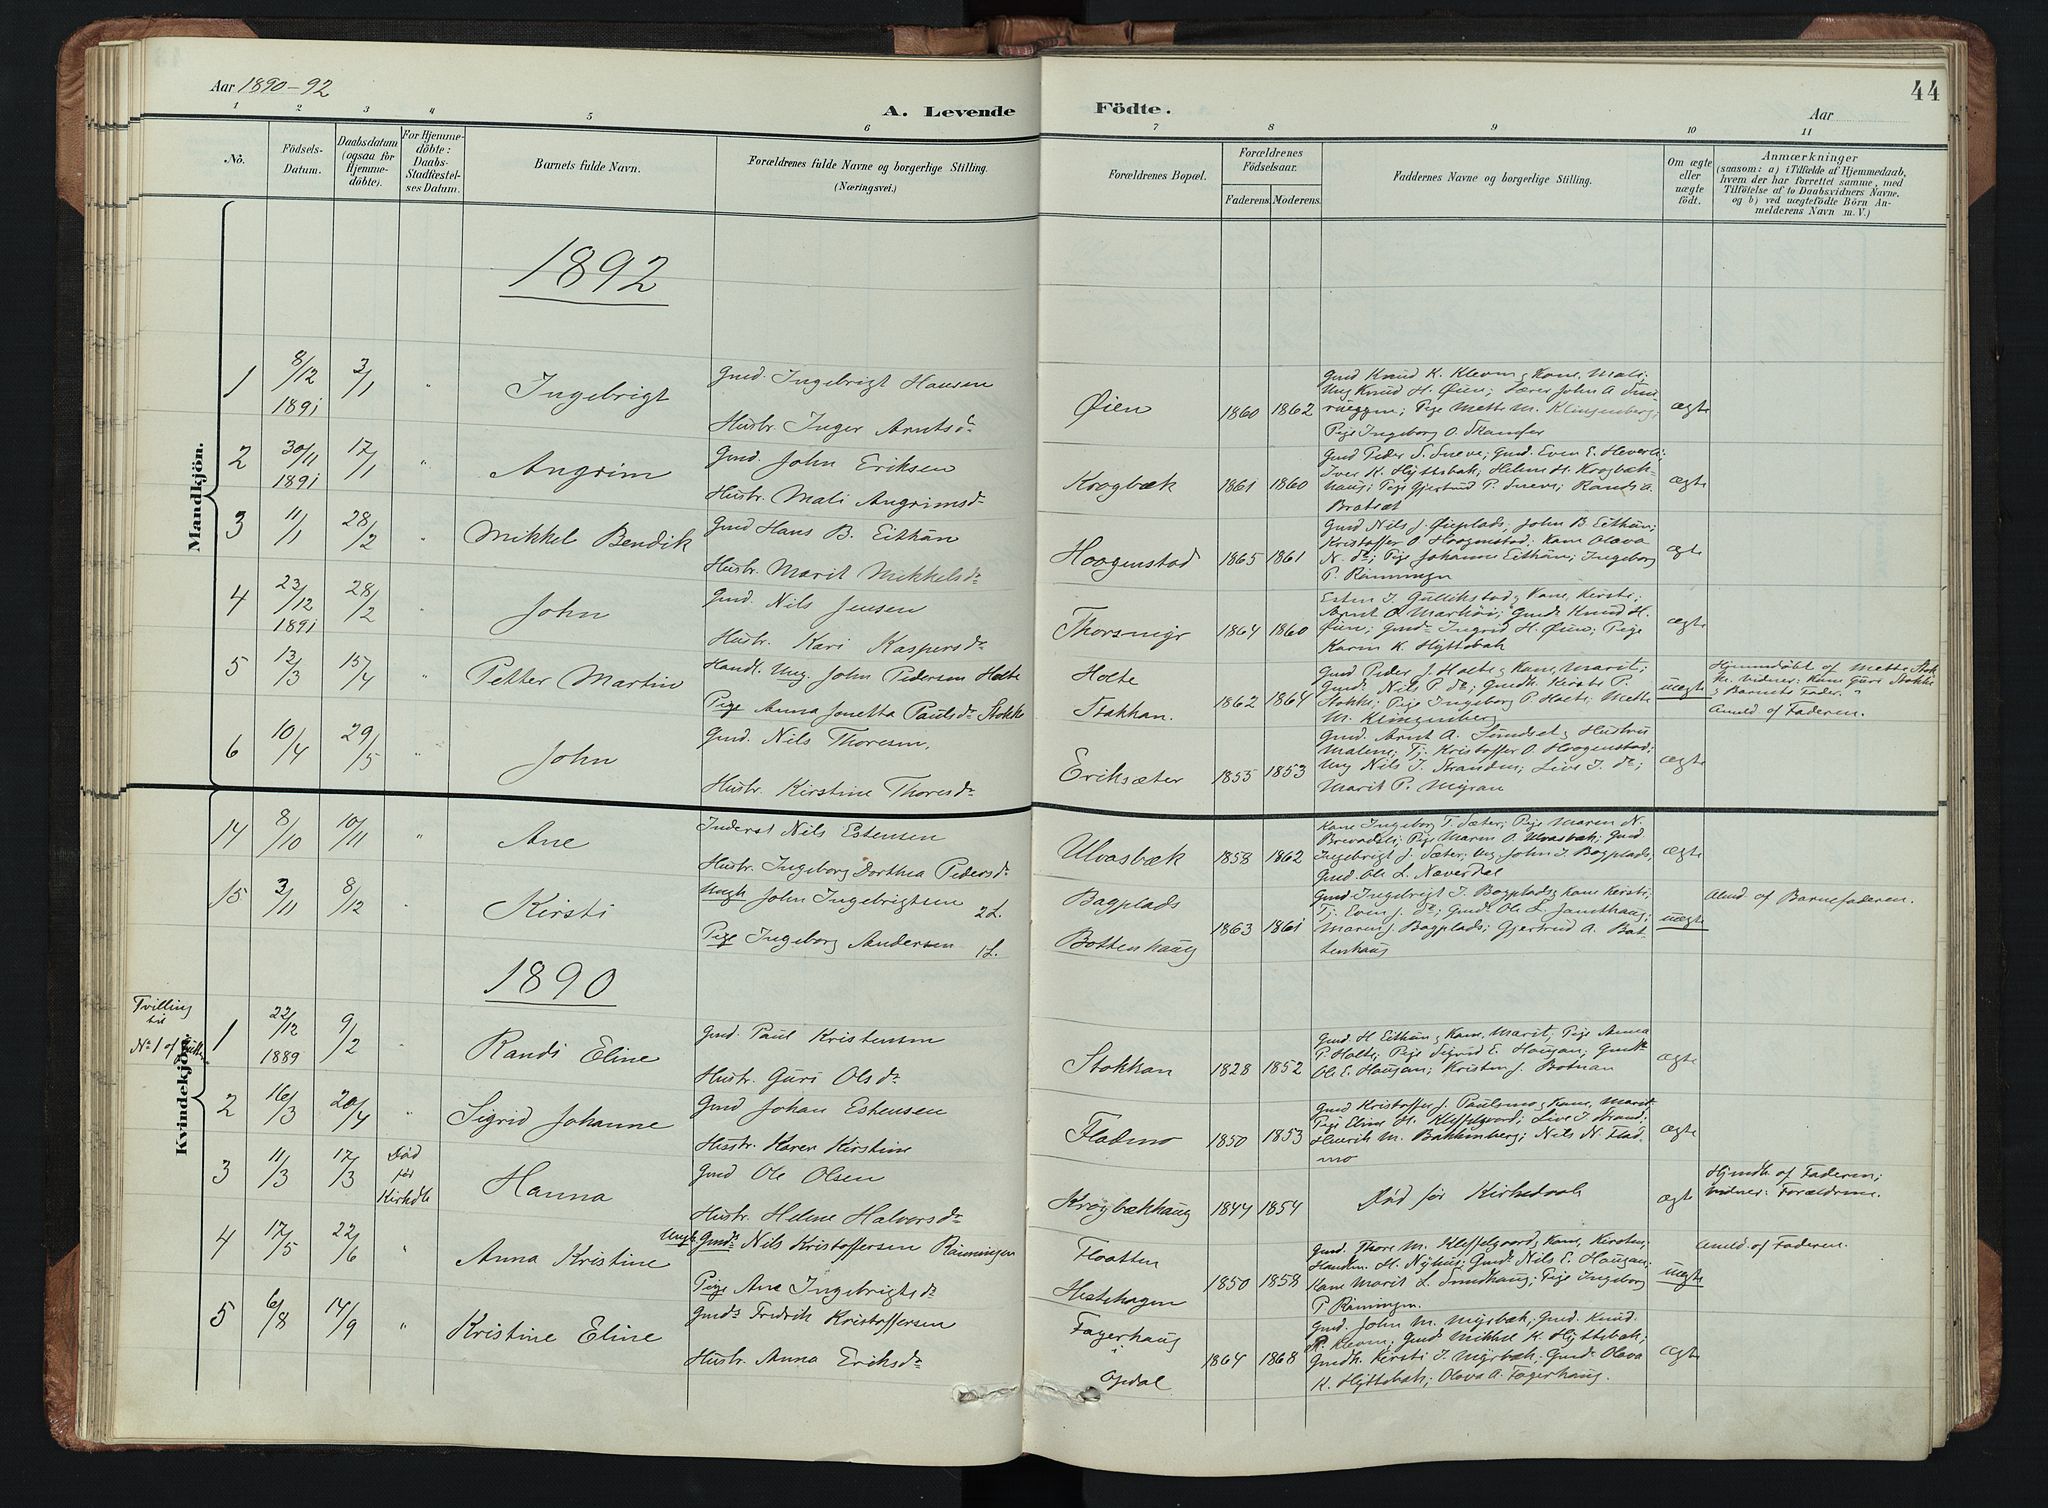 Aar 1890-92
A. Levende
Födte.
Aar
44
1 2 3 4 5 6 7 8 9 10 11
No.
Födsels-
Datum.
Daabsdatum
(ogsaa for
Hjemme-
döbte).
For Hjemme-
döbte:
Daabs-
Stadfæstel-
ses Datum.
Barnets fulde Navn.
Forældrenes fulde Navne og borgerlige Stilling.
(Næringsvei.)
Forældrenes Bopæl.
Forældrenes
Födselsaar.
Faderens. Moderens.
Faddernes Navne og borgerlige Stilling.
Om ægte
eller
uægte
födt.
Anmærkninger
(saasom: a) i Tilfælde af Hjemmedaab,
hvem der har forrettet samme, med
Tilföielse af to Daabsvidners Navne.
og b) ved uægtefödte Börn An-
melderens Navn m. V.)
Mandkjön.
1892
1 8/12 1891 3/1 " Ingebrigt
Gmd. Ingebrigt Hansen
Husbr. Inger Arntsdr
Øien 1860 1862
Gmd Knud K. Klevm & Kone Mali;
Ung Knud H. Øien; Lærer John A.
Pige Mette M. Klingenberg;
Pige Ingeborg O.
ægte
2 30/11 1891 17/1 " Angrim
Gmd. John Eriksen
Hustr. Mali Angrimsdr
Krogbæk 1861 1860
Gmd Peder S. Sneve; Gmd. Even E.
Iver K. Hyttebak; Helene H. Krogbæk-
haug; Pige Gjertrud P. Sneve; Randi A.
Bratset
ægte
3 11/1 28/2 " Mikkel Bendik
Gmd Hans B. Eithun
Hustr. Marit Mikkelsdr
Hoogenstad 1865 1861
Gmd Nils J. Øieplads; John B Eithun;
Kristoffer O Hoogenstad; Kone Olava
N. do; Pige Johanne Eithun; Ingeborg
P. Rönningen
ægte
4 23/12 1891 28/2 " John
Gmd. Nils Jensen
Hustr. Kari Kaspersdr
Thorsmyr 1864 1860
Esten J. Gullikstad & Kone Kirsti;
Arnt O. Gmd Knud H.
Øien; Ingrid H. Øien; Pige
Karen K. Hyttebak
ægte
5 12/3 15/4 " Petter Martin
Handl. Ung. John Pedersen Holte
Pige Anna Jonetta Paulsdr Stokke
Holte
Stokkan. 1862 1864
Gmd Peder J. Holte & Kone Marit;
Gmd. Nils P. do; Kirsti P.
Stokke; Pige Ingeborg P. Holte; Mette
M. Klingenberg
uægte
Hjemmedöbt af Mette Stok
ke. Vidner: Kone Guri Stokke
& Barnets Fader.
Anmeld af Faderen.
6 10/4 29/5 " John
Gmd. Nils Thoresen.
Hustr. Kirstine Thoresdr
Eriksæter 1855 1853
Gmd. Arnt A. Sundset & Hustru
Malene; Tj. Kristoffer O. Hoogenstad;
Ung Nils J. Stranden; Live J. do;
Marit P. Myran
ægte
14 8/10 10/11 " Ane
Inderst Nils Estensen
Hustr. Ingeborg Dorthea Pedersdr
Ulvasbæk 1858 1862
Kone Ingeborg T. Sæter; Pige Maren N.
Pige Maren O. Ulvasbæk; Gmd.
Ingebrigt J. Sæter; Ung John I. Bagplads;
Gmd. Ole L. Næverdal
ægte
15 3/11 8/12 " Kirsti
Ungk. John Ingebrigtsen 2 L.
Pige Ingeborg Andersen 1 L.
Bagplads
Bottenhaug 1863 1861
Gmd Ingebrigt J. Bagplads & Kone Kirsti;
Tj. Even J. do; Gmd. Ole L.
Maren J. Bagplads; Gjertrud A. Bot-
tenhaug
uægte
Anmd. af Barnefaderen.
1890
Kvindekjön.
Tvilling
til
No 1 af
1 22/12 1889 9/2 Randi Eline
Gmd. Paul Kristensen
Hustr. Guri Olsdr
Stokkan 1828 1852
Gmd. H Eithun & Kone Marit; Pige Anna
P. Holte; Pige Sigrid E. Haugan;
Ole E. Haugan; Kristen J. Botnan
ægte
2 16/3 20/4 " Sigrid Johanne
Gmd Johan Estensen
Hustr. Karen Kirstine
Fladmo 1850 1853
Gmd Kristoffer J. Paulsmo & Kone Marit
Pige Eline H. Kleffelgaard; Live J. Strand;
Henrik M. Bakkenberg; Nils N. Flad-
mo
ægte
3 11/3 17/3 Död
før
Kirkdb
Hanna
Gmd Ole Olsen
Hustr. Helene Halvorsdr
Krogbækhaug 1844 1854
Död før Kirkedaab
ægte
Hjmdb. af Faderen;
Vidner: Forældrene.
4 17/5 22/6 " Anna Kristine
Ungk. Nils Kristoffersen Rönningen
Pige Ane Ingebrigtsdr
Floatten
Hestehagen 1850 1858
Gmd. Thore M. Kleffelgaard & Kone Kirsten;
H. Nyhus; Gmd. Nils E. Haugan;
Kone Marit L. Pige Ingeborg
P Rönningen.
uægte
Anmld. af Faderen.
5 6/8 14/9 " Kristine Eline
Gmd Fredrik Kristoffersen
Hustr. Anna Eriksdr
Fagerhaug
i
Opdal 1864 1868
Gmd. John M. Myrbæk; Gmd. Knud
K. Klevm; Gmd. Mikkel K. Hyttebak;
Kirsti J. Myrbæk; Olava
K. Hyttebak; Olava A. Fagerhaug.
ægte